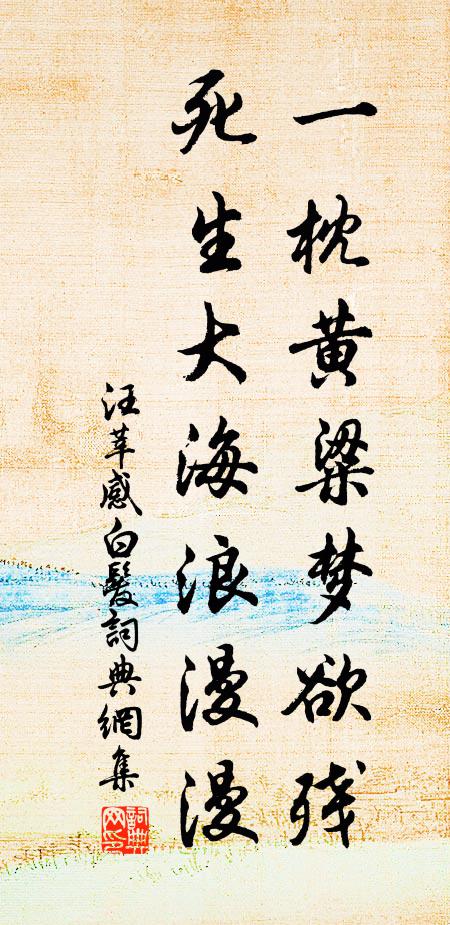 一枕黄粱梦欲残
死生大海浪漫漫
汪莘感白髮詞典網集
詞典
网印